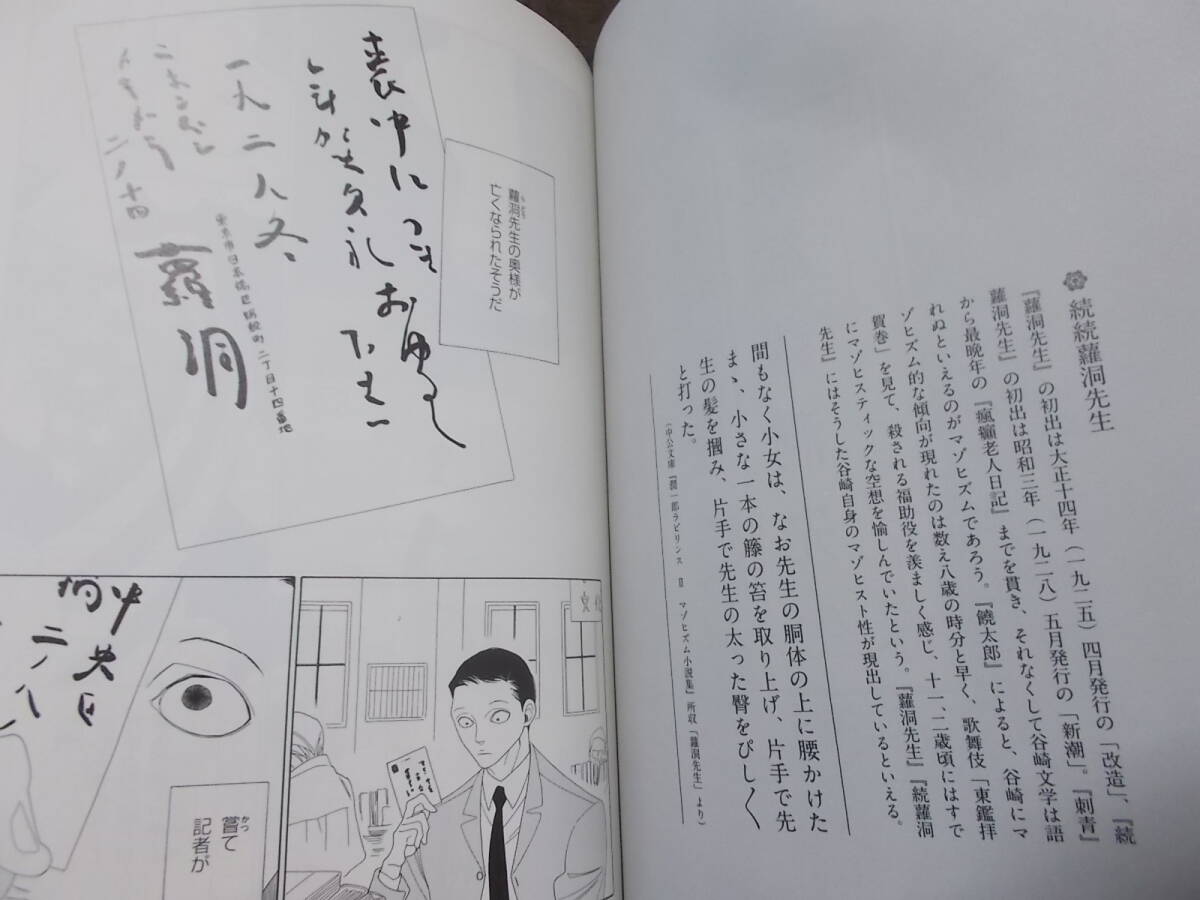 続続蘿洞先生
『蘿洞先生』の初出は大正十四年（一九二五）四月発行の「改造」、『続
蘿洞先生』の初出は昭和三年（一九二八）五月発行の「新潮」。『刺青』
から最晩年の『瘋癲老人日記』までを貫き、それなくして谷崎文学は語
れぬといえるのがマゾヒズムであろう。『饒太郎』によると、谷崎にマ
ゾヒズム的な傾向が現れたのは数え八歳の時分と早く、歌舞伎「東鑑拝
賀巻」を見て、殺される福助役を羨ましく感じ、十一、二歳頃にはすで
にマゾヒスティックな空想を愉しんでいたという。『蘿洞先生』『続蘿洞
先生』にはそうした谷崎自身のマゾヒスト性が現出しているといえる。
間もなく小女は、なお先生の胴体の上に腰かけた
まゝ、小さな一本の籐の笞を取り上げ、片手で先
生の髪を掴み、片手で先生の太った臀をぴしく
と打った。
（中公文庫『潤一郎ラビリンス Ⅱ マゾヒズム小説集』所収「蘿洞先生」より）
蘿洞先生の奥様が
亡くなられたそうだ
喪中につき
年賀欠礼お
下さい
一九二八冬
東京市日本橋区蛎殻町二丁目十四番地
蘿洞
二ノ十四
中央日
二ノ八
嘗て
かつ
記者が